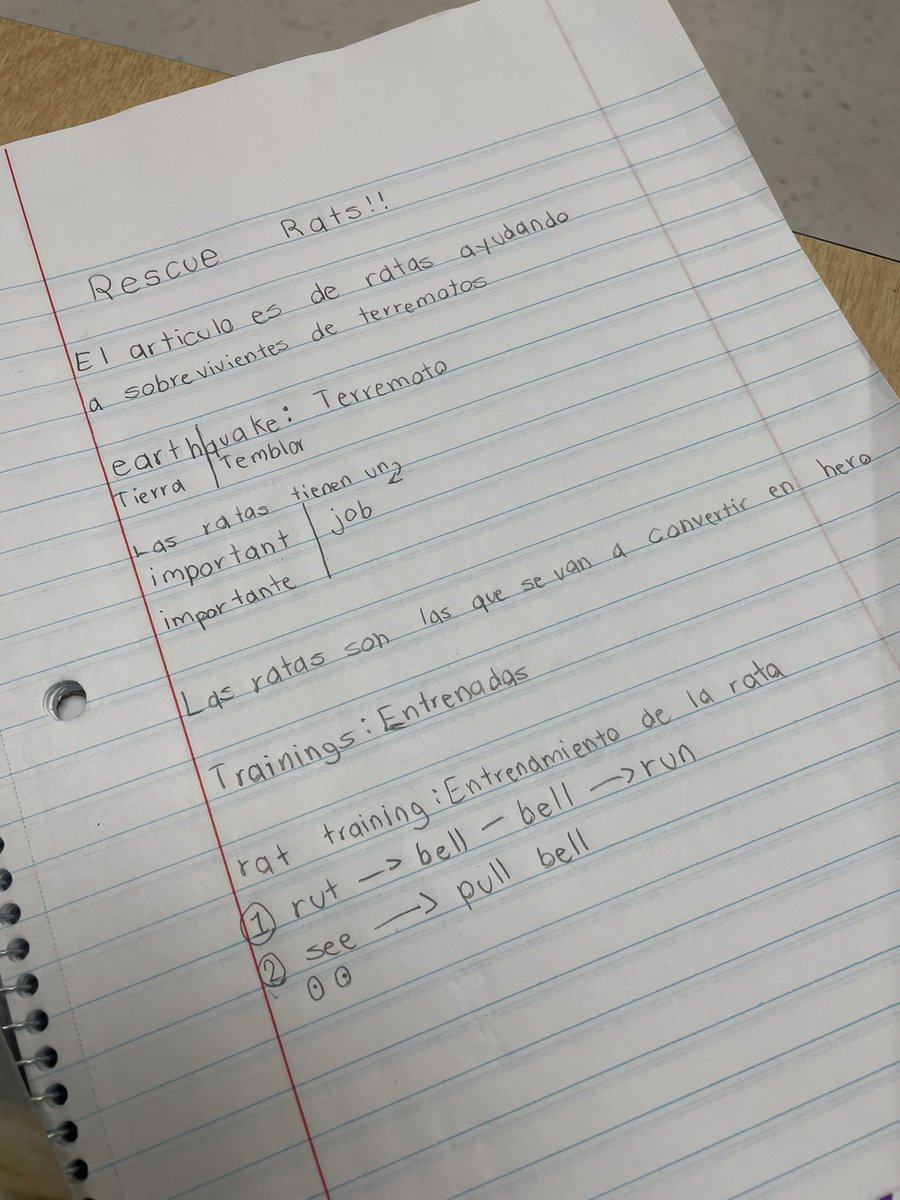 Rescue Rats!!
El articulo es de ratas ayudando
a sobrevivientes de terremotos
earthquake: Terremoto
Tierra Temblor
Las ratas tienen un
important job
importante
Las ratas son las que se van a convertir en hero
Trainings: Entrenadas
rat training: Entrenamiento de la rata
① rut → bell - bell → run
② see → pull bell